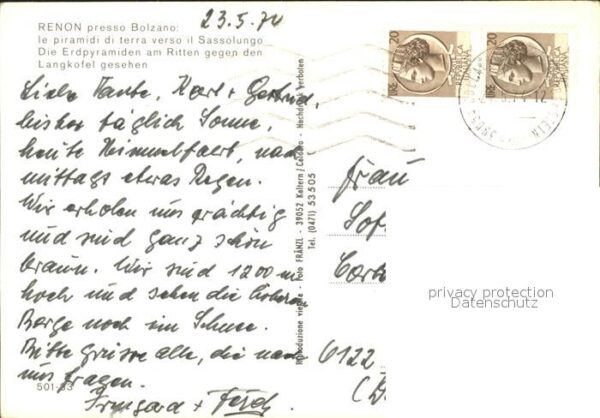 23.5.74
RENON presso Bolzano:
le piramidi di terra verso il Sassolungo
Die Erdpyramiden am Ritten gegen den
Langkofel gesehen
Liebe Tante, Karl + Gertrud,
bisher täglich Sonne,
heute Himmelfahrt, nach
mittags etwas Regen.
Wir erholen uns prächtig
und sind ganz schön
braun. Wir sind 1200 m
hoch und sehen die höheren
Berge noch im Schnee.
Bitte grüsse alle, die nach
uns fragen.
Irmgard + Ferd
501-53
Riproduzione vietata - Foto FRÄNZL - 39052 Kaltern/Caldaro - Nachdruck verboten
Tel. (0471) 53505
20
20
Frau
Sof
6122
privacy protection
Datenschutz